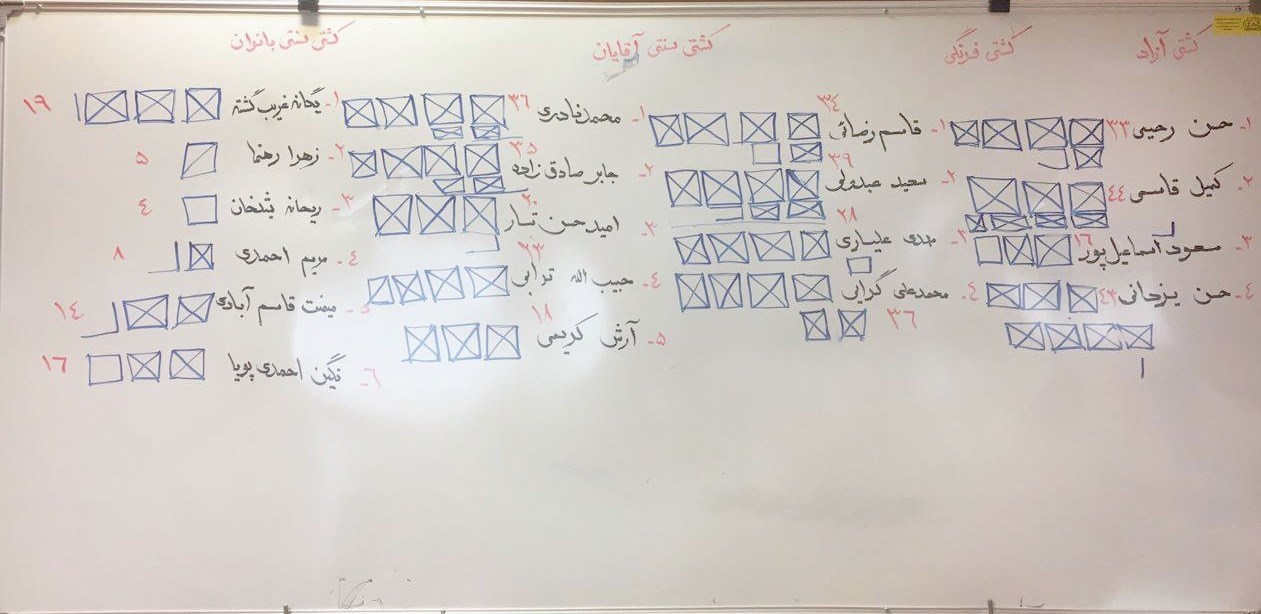 کشتی آزاد
۱- حسن رحیمی ۳۳
۲- کمیل قاسمی ۴۴
۳- مسعود اسماعیل پور ۱۶
۴- حسن یزدانی ۴۳
کشتی فرنگی
۱- قاسم رضائی ۳۴
۲- سعید عبدولی ۳۹
۳- مهدی علیاری ۲۸
۴- محمدعلی گرایی ۳۶
کشتی سنتی آقایان
۱- محمد نادری ۳۶
۲- جابر صادق زاده ۳۵
۳- امید حسن تبار ۲۰
۴- حبیب الله ترابی ۲۳
۵- آرش کریمی ۱۸
کشتی سنتی بانوان
۱- یگانه غریب گشته ۱۹
۲- زهرا رهنما ۵
۳- ریحانه ۴
۴- مریم احمدی ۸
۵- میمنت قاسم آبادی ۱۴
۶- نگین احمدی پویا ۱۶